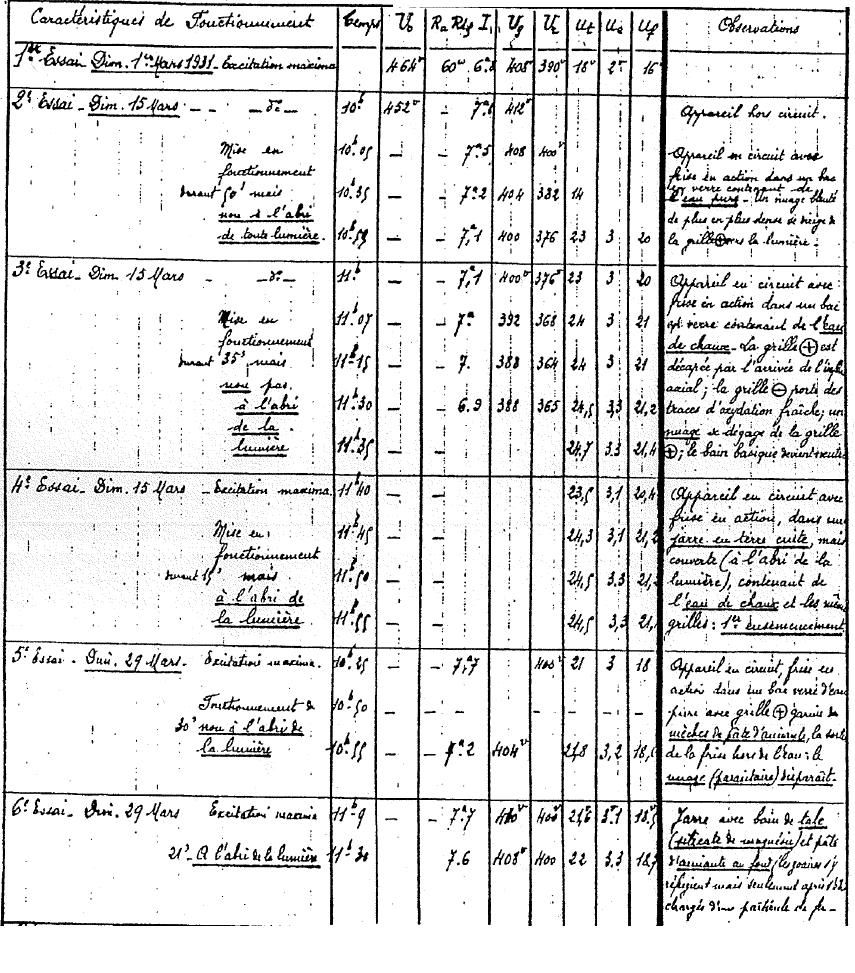 Caractéristiques de Fonctionnement Temps U Ra Rhg I. Ug Ur Ut Ue Uf Observations
1er Essai Dim. 1er Mars 1931 - Excitation maxima 464v 60w 6.8 408v 390v 18v 2v 16
2e Essai - Dim. 15 Mars - - - do - 10h 452v - 7a.8 412v Appareil hors circuit.
Mise en 10h.05 - - 7a.5 408 400v Appareil en circuit avec
fonctionnement frise en action dans un bac
durant 50' mais 10h.35 - - 7a.2 404 382 14 en verre contenant de
non à l'abri l'eau pure - Un nuage bleuté
de toute lumière. 10h.55 - - 7,a1 400 376 23 3 20 de plus en plus dense se dirige de
la grille ⊕ vers la lumière.
3e Essai - Dim. 15 Mars - - do - 11h - - 7,a1 400v 376v 23 3 20 Appareil en circuit avec
Mise en 11h.07 - - 7a. 392 368 24 3 21 frise en action dans un bac
fonctionnement en verre contenant de l'eau
durant 35' mais 11h-15 - - 7. 388 364 24 3 21 de chaux - La grille ⊕ est
non pas décapée par l'arrivée de l'influx
à l'abri 11h.30 - - 6.9 388 365 24,5 3,3 21,2 axial ; la grille ⊖ porte des
de la traces d'oxydation fraîche ; un
lumière 11h.35 24,7 3.3 21,4 nuage se dégage de la grille
⊕ ; le bain basique devient neutre
4e Essai - Dim. 15 Mars - Excitation maxima. 11h40 - - 23,5 3,1 20,4 Appareil en circuit avec
Mise en 11h-45 - - 24,3 3,1 21,2 frise en action, dans une
fonctionnement jarre en terre cuite, mais
durant 15' mais 11h-50 - - 24,5 3.3 21, couverte (à l'abri de la
à l'abri de lumière), contenant de
la lumière. 11h.55 - - 24,5 3,3 21, l'eau de chaux et les mêmes
grilles : 1er ensemencement
5e Essai - Dim. 29 Mars. Excitation maxima. 10h.25 - - 7,a7 400v 21 3 18 Appareil en circuit, frise en
action dans un bac verre d'eau
Fonctionnement de 10h-50 - - - - - - - - pure avec grille ⊕ garnie de
30' non à l'abri de mèches de pâte d'amiante, la sortie
la lumière 10h-55 - 7a.2 404v 21,8 3,2 18, de la frise hors de l'eau : le
nuage (parasitaire) disparaît.
6e Essai - Dim. 29 Mars Excitation maxima 11h-9 - - 7a.7 410v 400v 21v6 3v1 18v5 Jarre avec bain de talc
(silicate de magnésie) et pâte
21' - A l'abri de la lumière 11h-30 7.6 408v 400 22 3.3 18,7 d'amiante au four (les
réfugient mais seulement après
chargés d'une particule de